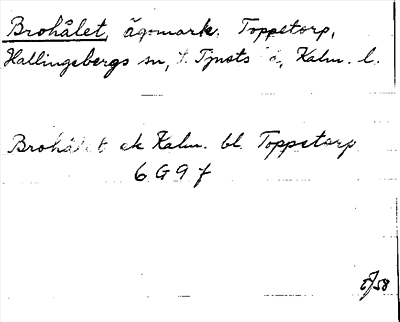 Brohålet, ägomark. Toppetorp,
Hallingebergs sn, S. Tjusts hd, Kalm. l.
Brohålet ek Kalm. bl. Toppetorp
6 G 9 f
5/58